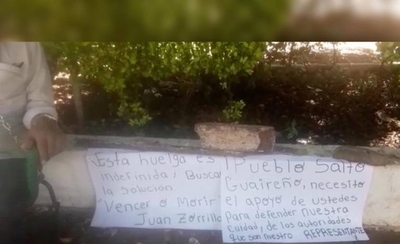 Esta huelga es
indefinida, Busca
la solución.
Vencer o Morir
Juan Zorrilla
Pueblo Salto
Guaireño, necesito
el apoyo de ustedes
para defender nuestra
cuidad, de las autoridades
que son nuestro REPRESENTANTE